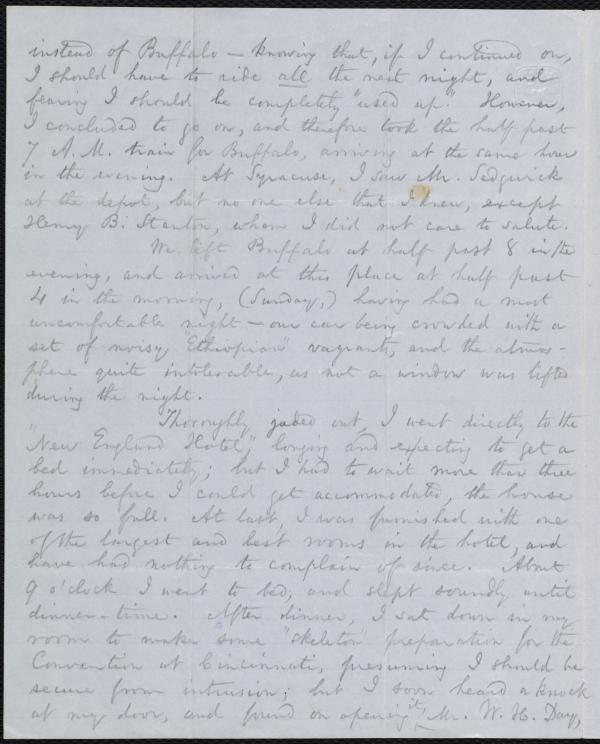 instead of Buffalo — knowing that, if I continued on,
I should have to ride all the next night, and
fearing I should be completely "used up." However,
I concluded to go on, and therefore took the half past
7 A.M. train for Buffalo, arriving at the same hour
in the evening. At Syracuse, I saw Mr. Sedgwick
at the depot, but no one else that I knew, except
Henry B. Stanton, whom I did not care to salute.
We left Buffalo at half past 8 in the
evening, and arrived at this place at half past
4 in the morning, (Sunday,) having had a most
uncomfortable night — our car being crowded with a
set of noisy "Ethiopian" vagrants, and the atmos-
phere quite intolerable, as not a window was lifted
during the night.
Thoroughly jaded out, I went directly to the
"New England Hotel," longing and expecting to get a
bed immediately; but I had to wait more than three
hours before I could get accommodated, the house
was so full. At last, I was furnished with one
of the largest and best rooms in the hotel, and
have had nothing to complain of since. About
9 o'clock I went to bed, and slept soundly until
dinner-time. After dinner, I sat down in my
room to make some "skeleton" preparation for the
Convention at Cincinnati, presuming I should be
secure from intrusion; but I soon heard a knock
at my door, and found on opening it, Mr. W. H. Day,